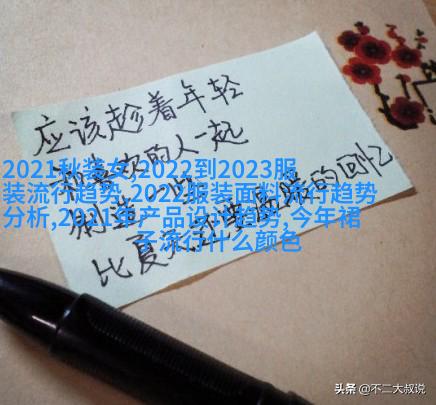 应该趁着年轻
和喜欢的人一起
制造一些
比夏天还要温暖的回忆
2021秋装女,2022到2023服
装流行趋势,2022服装面料流行趋势
分析,2021年产品设计趋势,今年裙
子流行什么颜色
头条 @不二大叔说